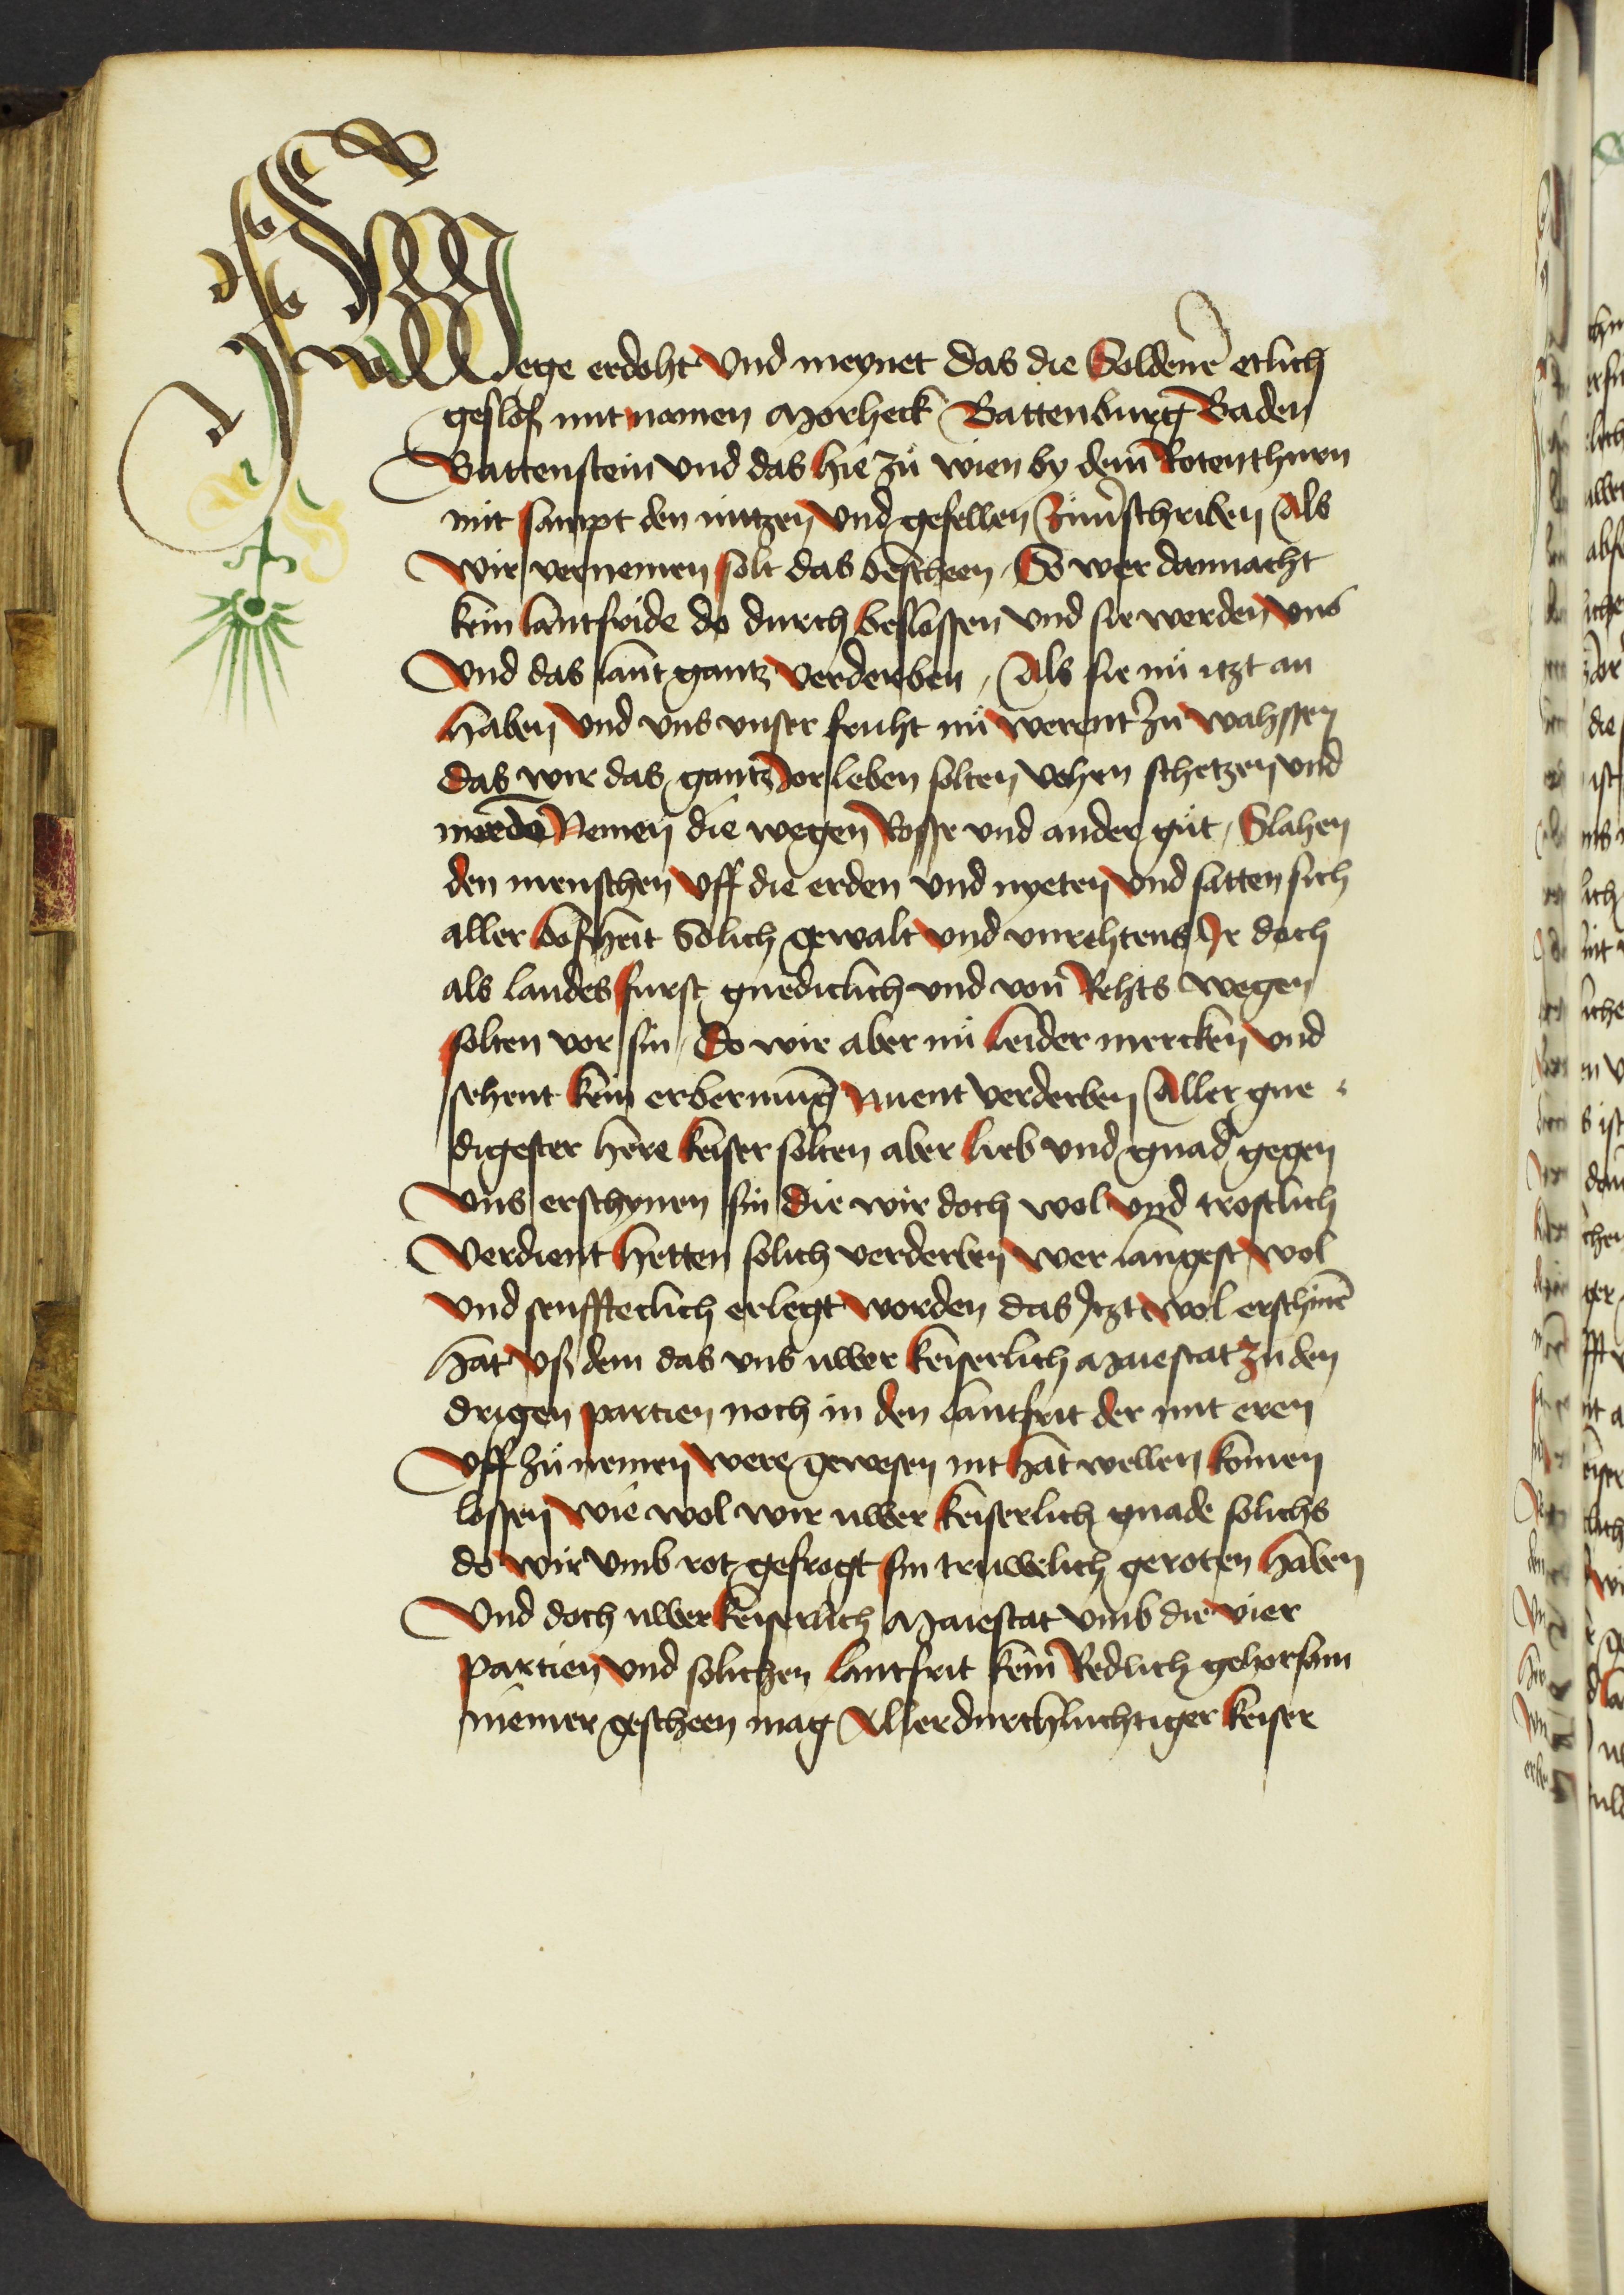 Wege erdoht vnd meynet das die Soldener etlich
gesloß mit namen Morheck Battenburg Baden
Battenstein vnd das hie zů wien by dem Rotenthurn
mit sampt den nutzen vnd gefellen Zuuerschriben Als
wir vernemen solt das bescheen So wer dannacht
kein lantfride do durch beslossen vnd sie werden vns
Vnd das lant gantz verderben Als sie nů itzt an
haben vnd vns vnser fruht nů werent zu wahssen
das wir das gantz Jor leben solten vohen schetzen vnd
morde Nemen die wegen Rosse vnd ander gůt Slahen
den menschen vff die erden vnd nyeten vnd satten sich
aller boßheit Solich gewalt vnd vnrehtens Jr doch
als landes furst gnediclich vnd von Rehts wegen
solten vor sin So wir aber nů leider mercken vnd
sehent kein erbermung vnent verderben Aller gne
digester herre keiser solten aber lieb vnd gnad gegen
vns erschynen sin die wir doch wol vnd trostlich
Verdient hetten solich verderben wer langest wol
vnd senffteclich erlegt worden das Jtzt wol erschine
hat vß dem das vns uwer keiserlich Maiestat zu den
drigen partien noch in den lantfrit der mit eren
vff zů nemen were gewesen nit hat wellen komen
lossen wie wol wir uwer keiserlich gnade solichs
do wir vmb rot gefrogt sin truwelich geroten haben
Vnd doch uwer keiserlich Maiestat vmb die vier
partien vnd solichen lantfrit kein Redlich gehorsam
niemer gescheen mag Allerdurchluchtiger keiser